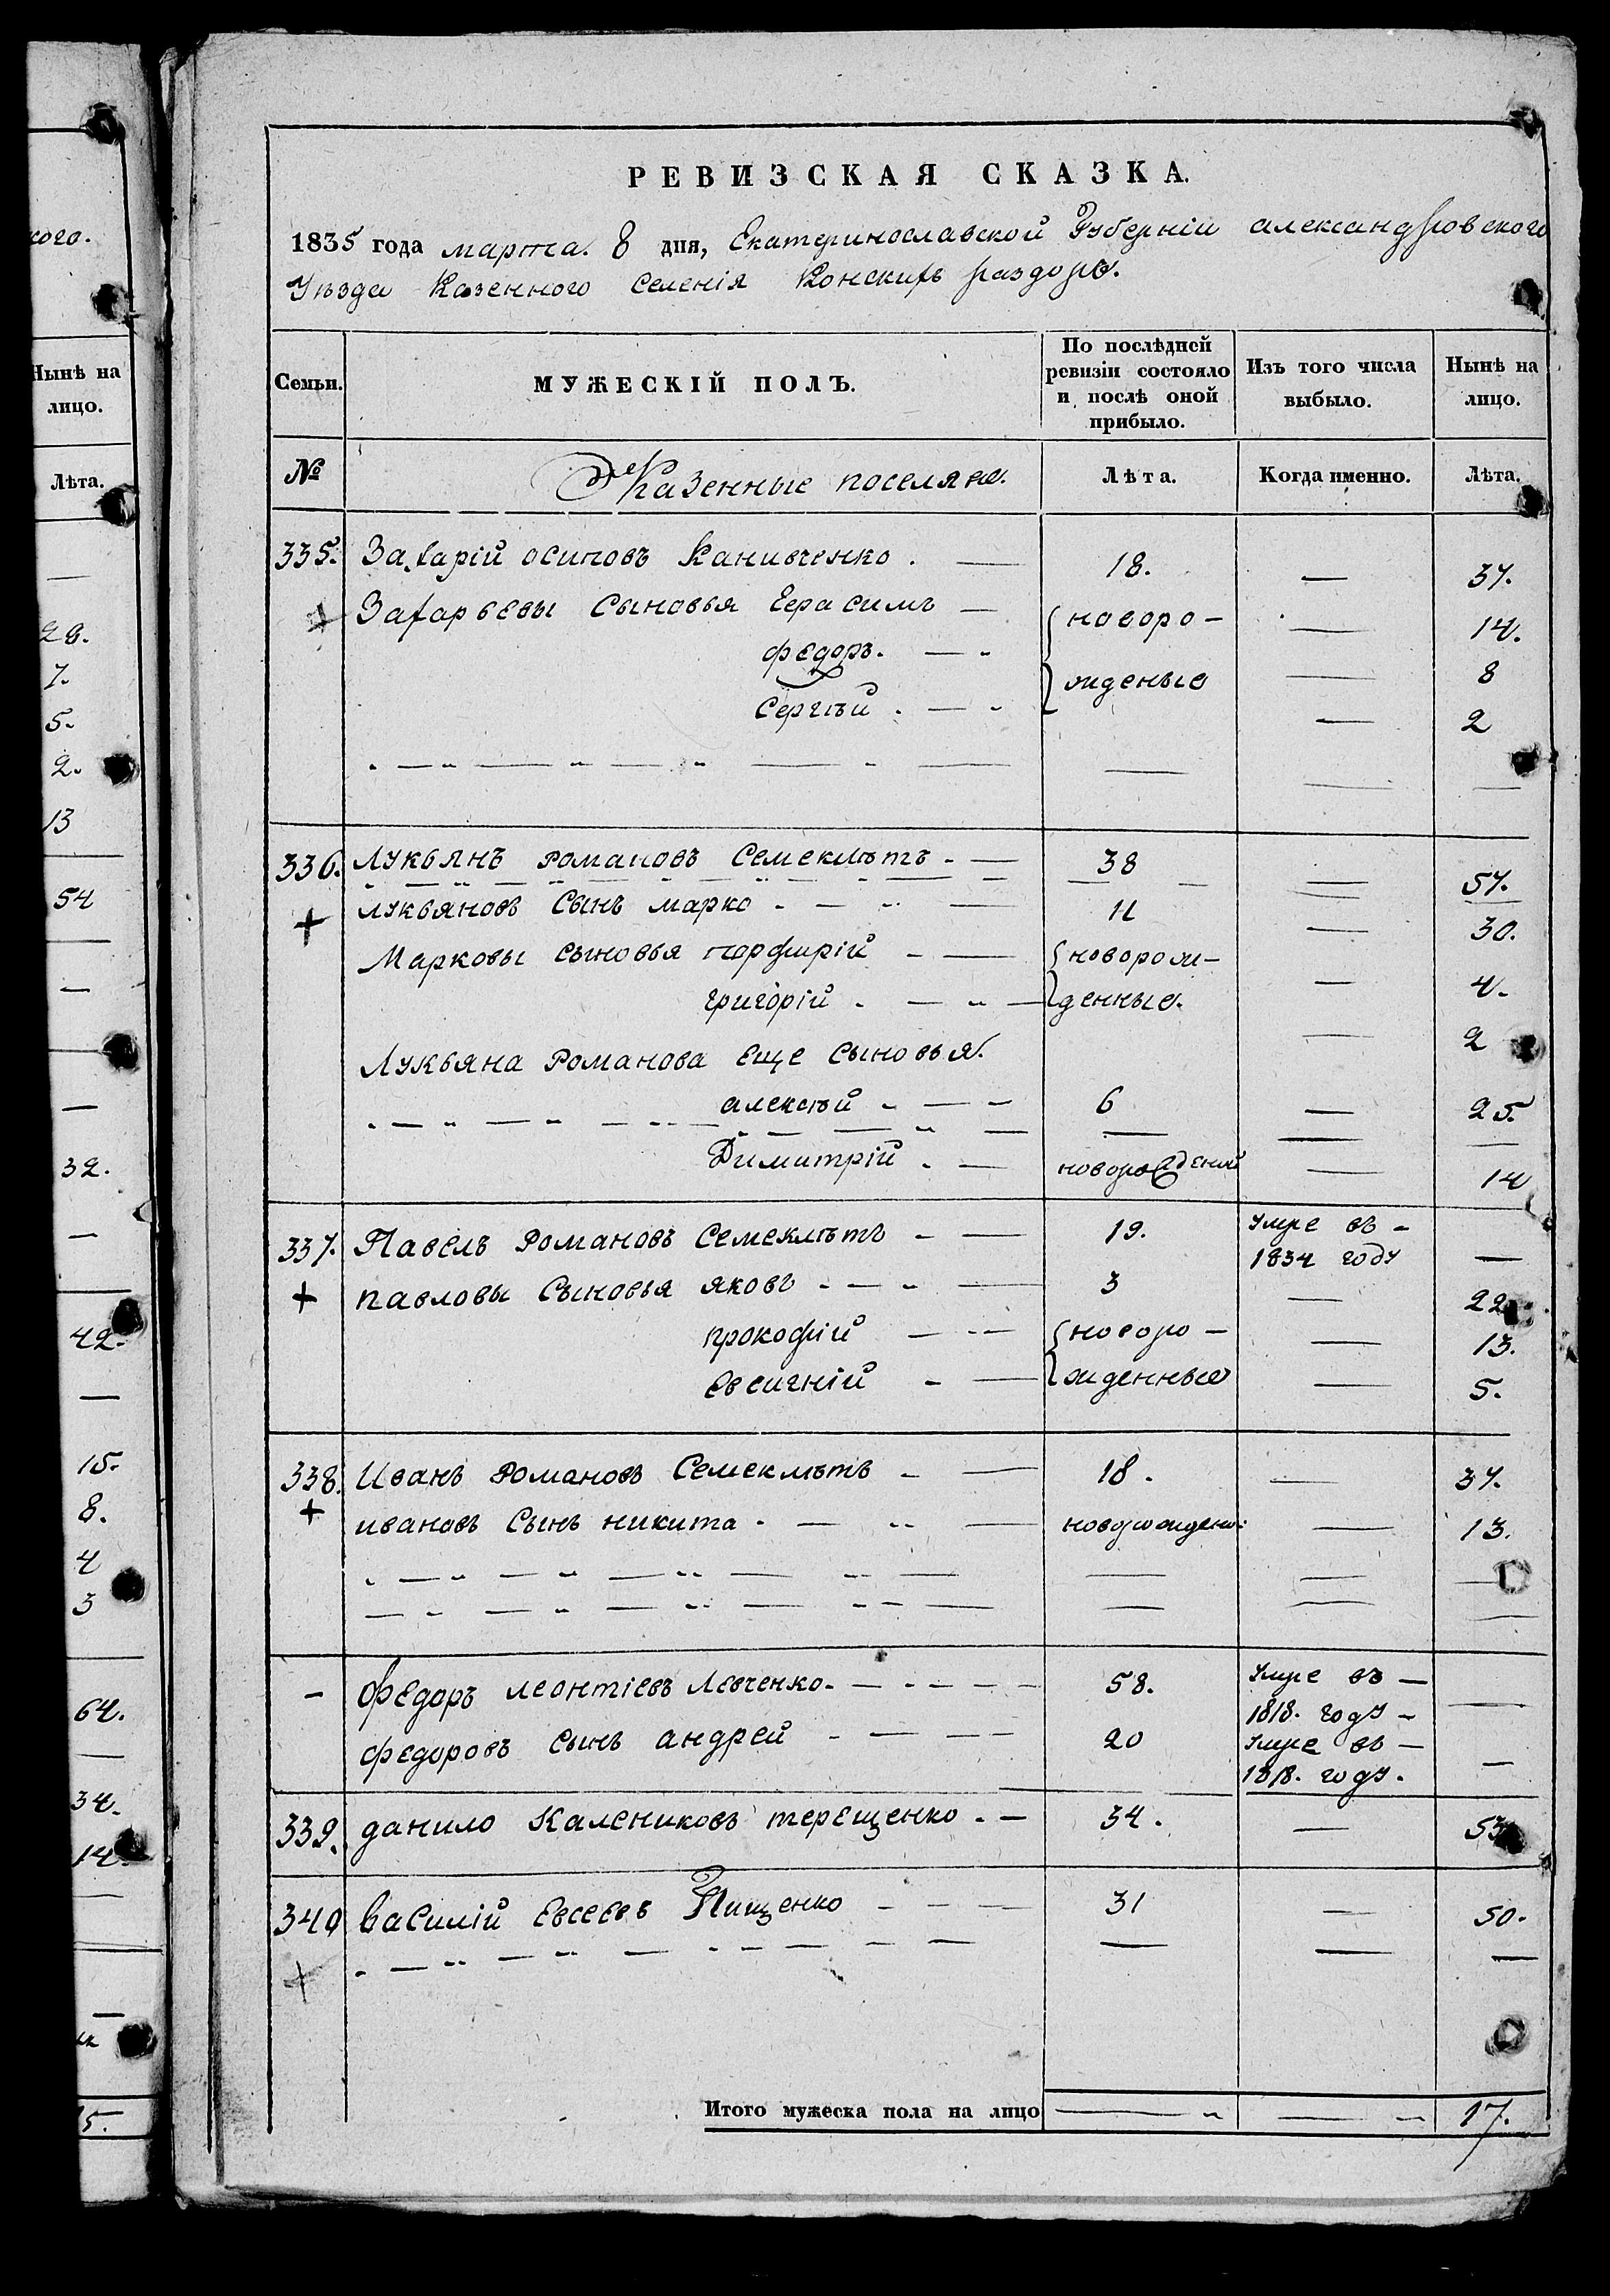 кого.
Нынѣ на
лицо.
Лѣта.
28.
7.
5.
2.
13
54
32.
42.
15.
8.
4
3
64.
34.
14.
5.
РЕВИЗСКАЯ СКАЗКА.
1835 года марта. 8 дня, Екатеринославской Губерніи александровского
Уѣзда Казенного селенія Конскихъ раздоръ.
Семьи. МУЖЕСКІЙ ПОЛЪ. По послѣдней ревизіи состояло и послѣ оной прибыло. Изъ того числа выбыло. Нынѣ на лицо.
№ Казенные поселяне. Лѣта. Когда именно. Лѣта.
335. Захарій осиповъ Канивченко . — 18. — 37.
+ Захарьевы сыновья Герасимъ — новоро- — 14.
федоръ. — жденые — 8
Сергѣй . — — 2
336. Лукьянъ романовъ Семеклѣтъ - — 38 — 57.
+ лукьяновъ Сынъ марко - — 11 — 30.
Марковы сыновья порфирій - — новорож- — 4.
григорій . — денные. — 2
Лукьяна романова еще сыновья.
алексѣй - — 6 — 25.
Димитрій . — новорожденый — 14
337. Павелъ романовъ Семеклѣтъ - — 19. Умре въ - —
1834 году
+ павловы Сыновья яковъ - — 3 — 22.
прокофій — новоро- — 13.
Евсигній - — жденные — 5.
338. Иванъ романовъ Семеклѣтъ - — 18. — 37.
+ ивановъ Сынъ никита - — новорожден: — 13.
- федоръ леонтіевъ Левченко - — 58. Умре въ — —
1818. году -
федоровъ сынъ андрей - — 20 Умре въ — —
1818. году.
339. данило Калениковъ терещенко . — 34. — 53
340 Василій Евсеевъ Пищенко - — 31 — 50.
+
Итого мужеска пола на лицо — — 17.